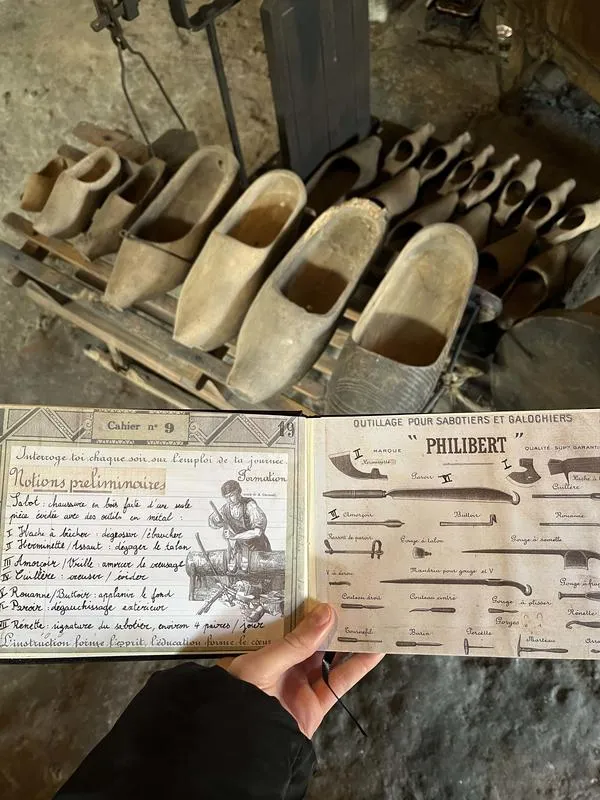 Cahier n° 9
19
Interroge toi chaque soir sur l'emploi de ta journée.
Notions préliminaires
Formation
Sabot : chaussure en bois faite d'une seule
pièce évidée avec des outils en métal :
I Hache à bûcher : dégrossir / ébaucher
II Herminette / Assaut : dégager le talon
III Amorçoir / Vrille : amorcer le creusage
IV Cuillère : creuser / évider
V Rouanne / Buttoir : applanir le fond
VI Paroir : dégauchissage extérieur
VII Rénette : signature du sabotier, environ 4 paires / jour
L'instruction forme l'esprit, l'éducation forme le cœur
OUTILLAGE POUR SABOTIERS ET GALOCHIERS
MARQUE "PHILIBERT" QUALITÉ SUPre GARANTIE
II
Herminette
I
Hache à
Paroir VI
Cuillère
III Amorçoir
Buttoir
Rouanne
Ressort de paroir
Gouge à talon
Gouge à semelle
Mandrin pour gouge et V
V à écrou
Gouge à
Couteau droit
Couteau cintré
Gouge à plisser
Gorges
Rénette
Tournefil
Burin
Percette
Marteau